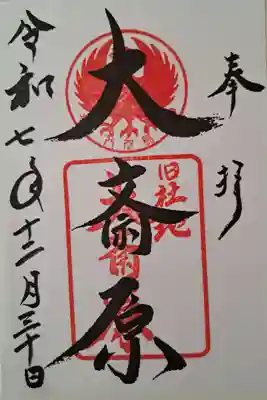 奉拝
旧社地
大斎原
令和七年十二月三十日